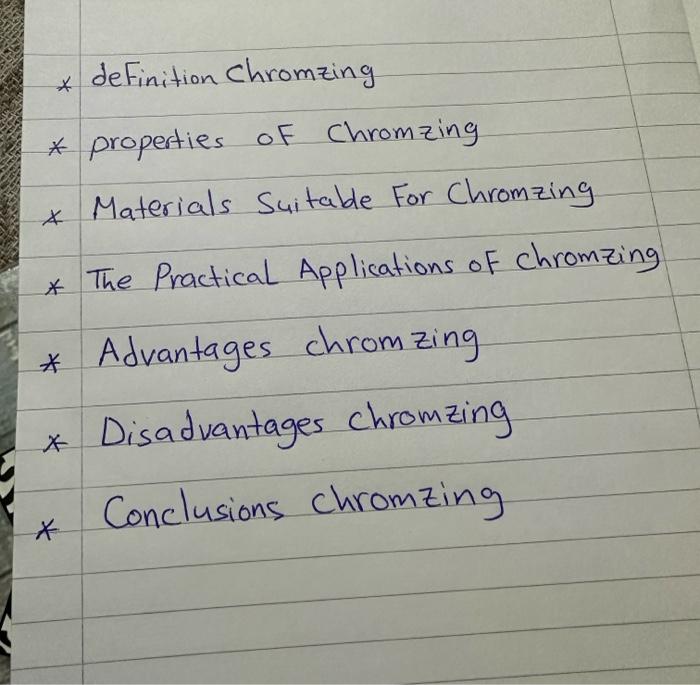 * definition Chromzing
* properties of Chromzing
* Materials Suitable For Chromzing
* The Practical Applications of chromzing
* Advantages chromzing
* Disadvantages chromzing
* Conclusions chromzing